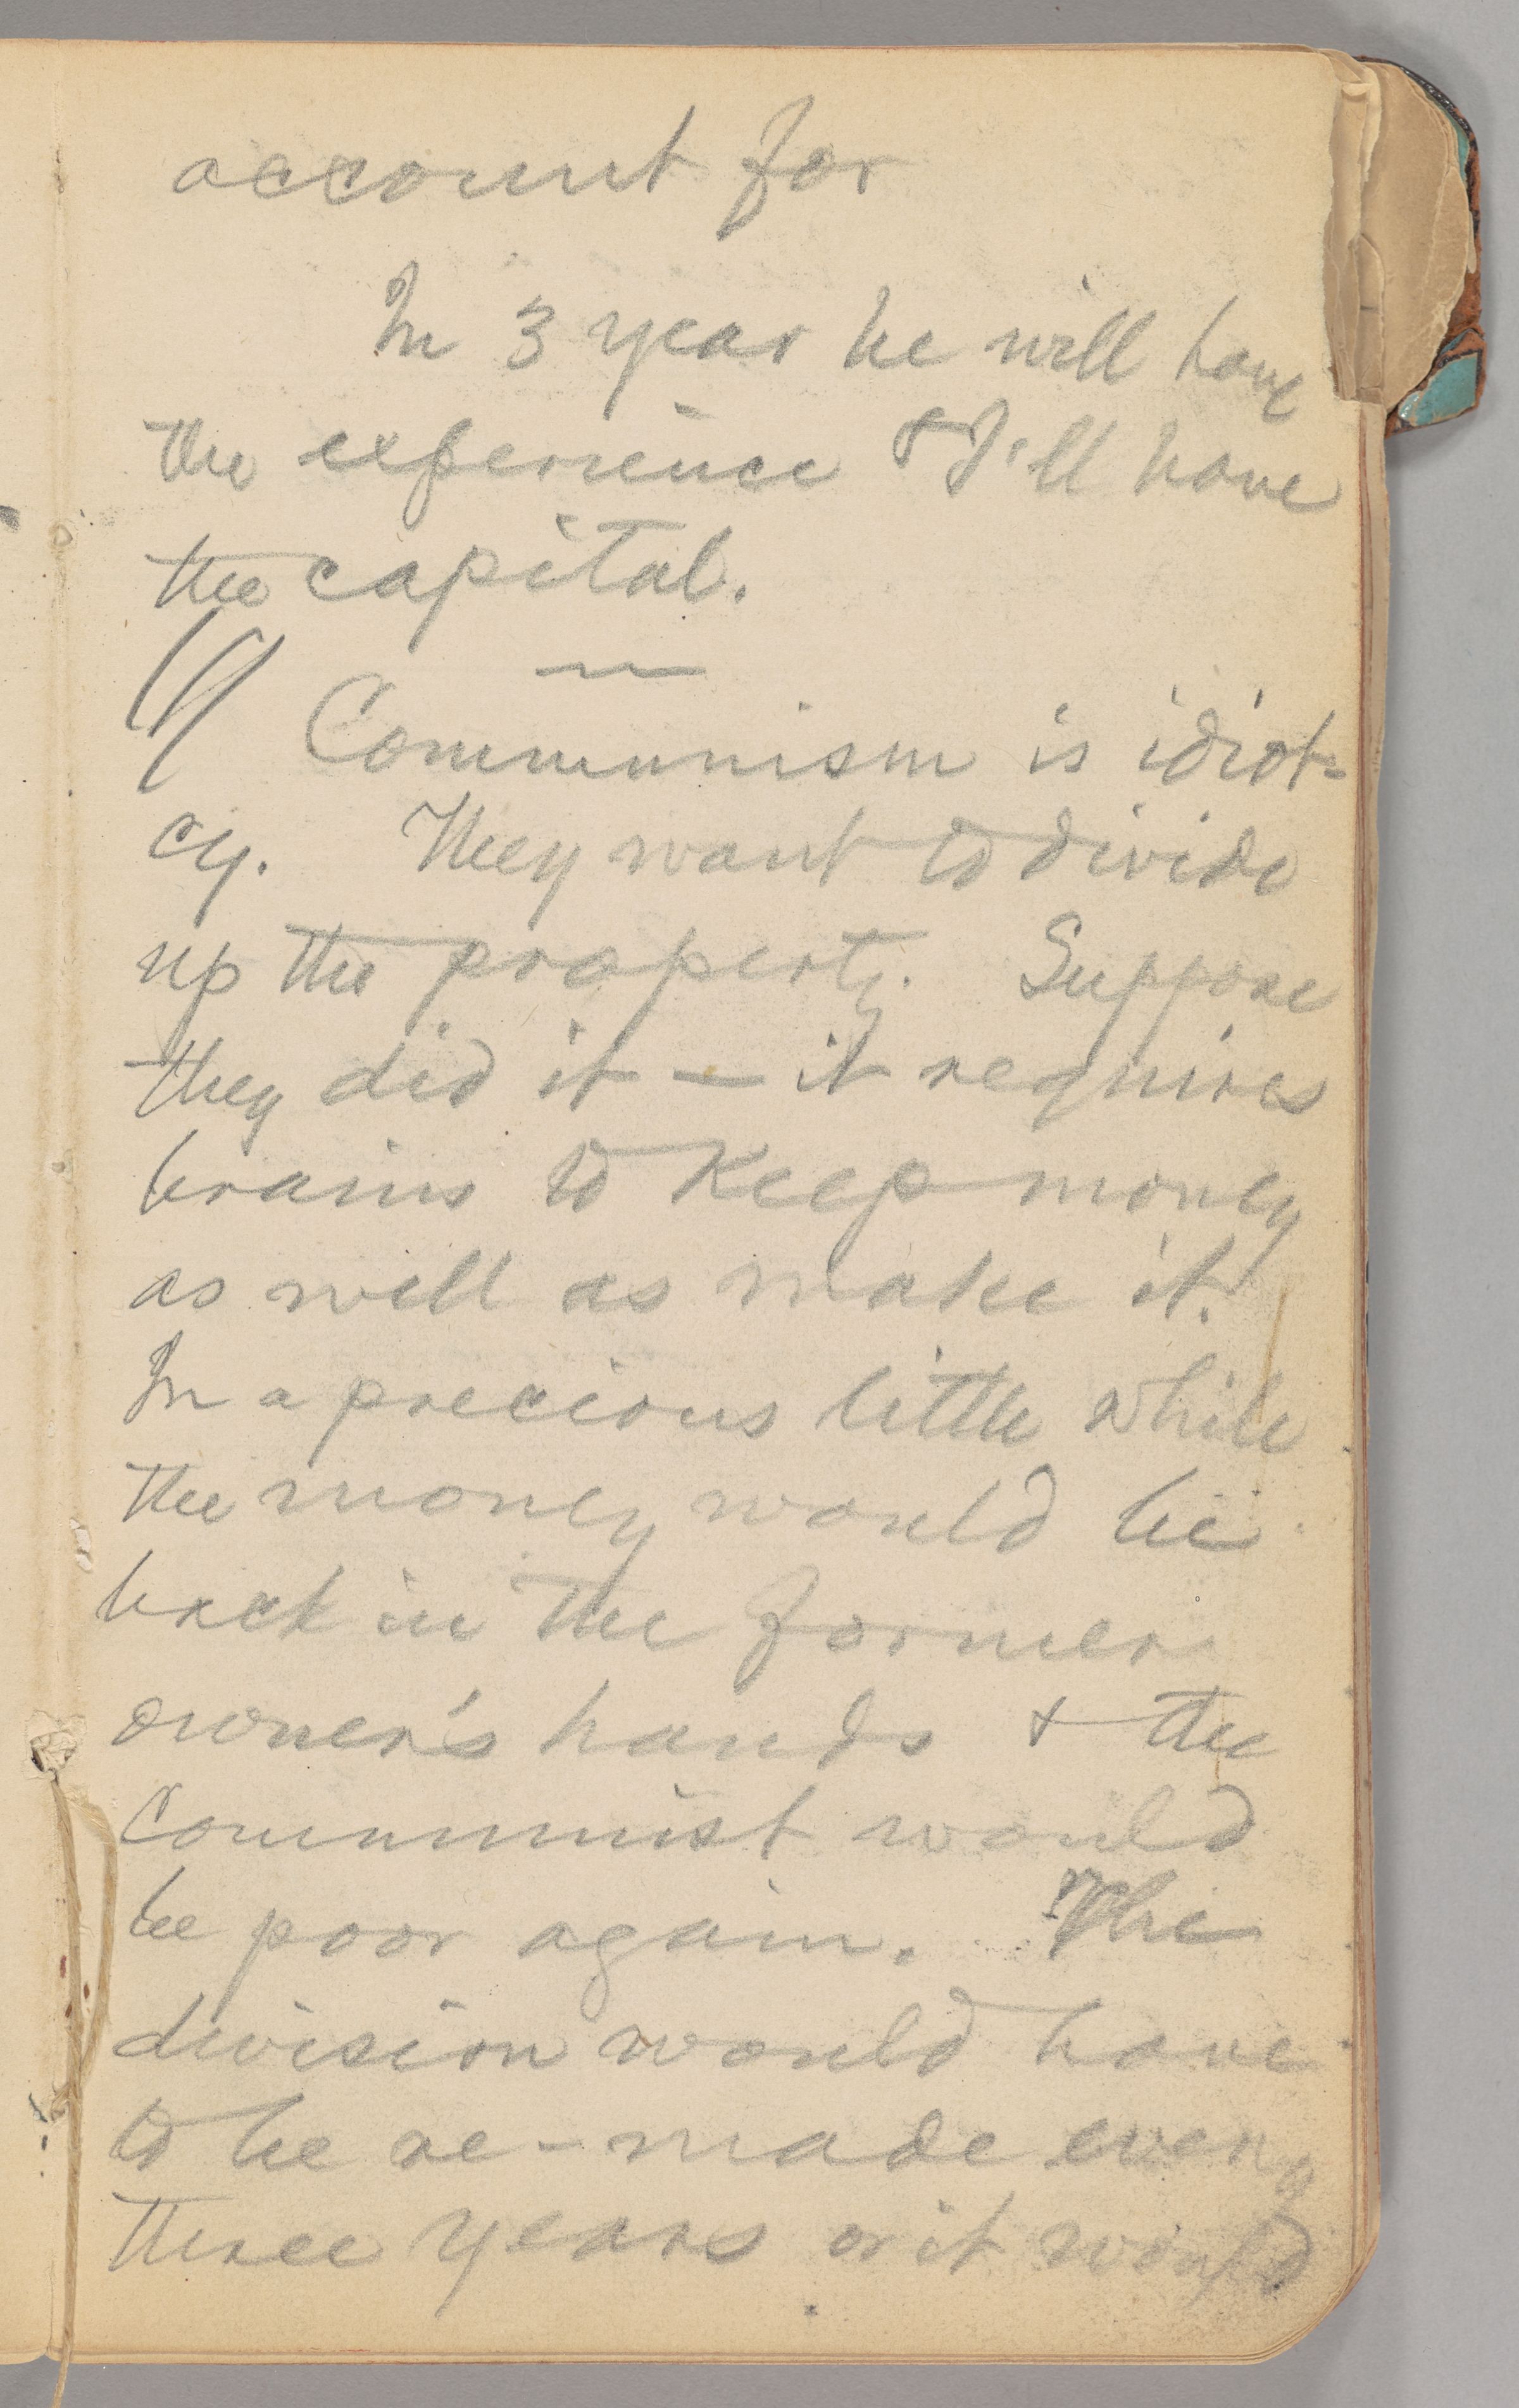 account for
In 3 year he will have
the experience & I'll have
the capital.
Communism is idiot-
cy. They want to divide
up the property. Suppose
they did it — it requires
brains to keep money
as well as make it.
In a precious little while
the money would be
back in the former
owner's hands & the
Communist would
be poor again. The
division would have
to be re-made every
three years or it would